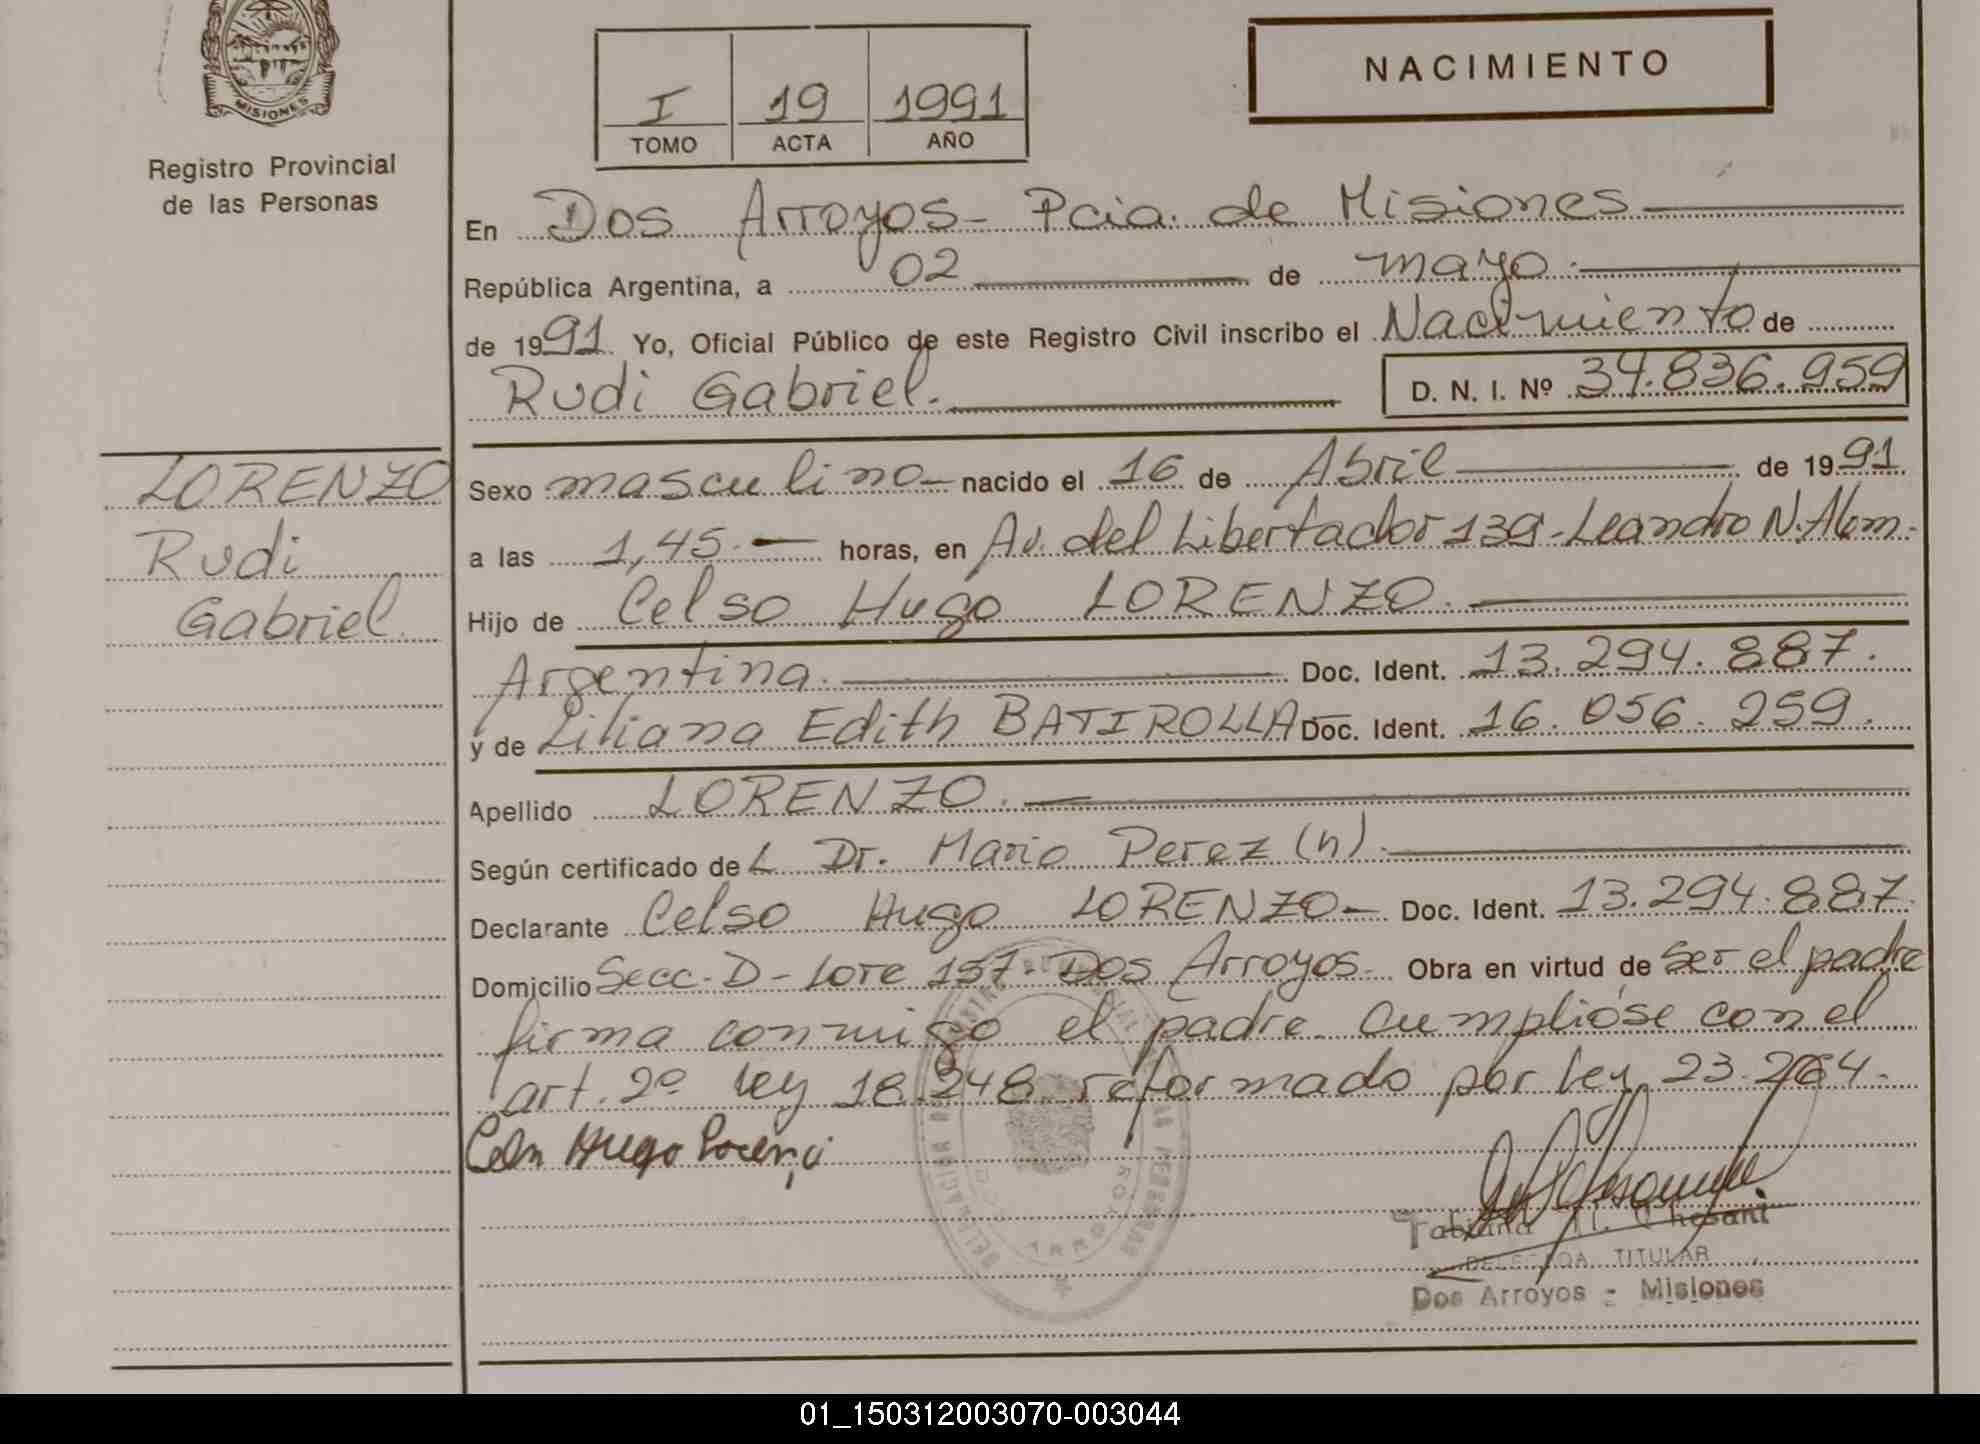 MISIONES
Registro Provincial
de las Personas
I 19 1991
TOMO ACTA AÑO
NACIMIENTO
En Dos Arroyos - Pcia. de Misiones
República Argentina, a 02 de mayo.
de 1991. Yo, Oficial Público de este Registro Civil inscribo el Nacimiento de
Rudi Gabriel. D. N. I. Nº 34.836.959
LORENZO
Rudi
Gabriel.
Sexo masculino - nacido el 16 de Abril de 1991.
a las 1,45.- horas, en Av. del Libertador 139 - Leandro N. Alem.
Hijo de Celso Hugo LORENZO.
Argentina. Doc. Ident. 13.294.887.
y de Liliana Edith BATIROLLA Doc. Ident. 16.056.259.
Apellido LORENZO.
Según certificado de L Dr. Mario Perez (h).
Declarante Celso Hugo LORENZO - Doc. Ident. 13.294.887.
Domicilio Secc. D - Lote 157. Dos Arroyos. Obra en virtud de ser el padre
firma conmigo el padre. Cumplióse con el
art. 2º ley 18.248 reformado por ley 23.264.
Hugo
DELEGADA TITULAR
Dos Arroyos - Misiones
01_150312003070-003044